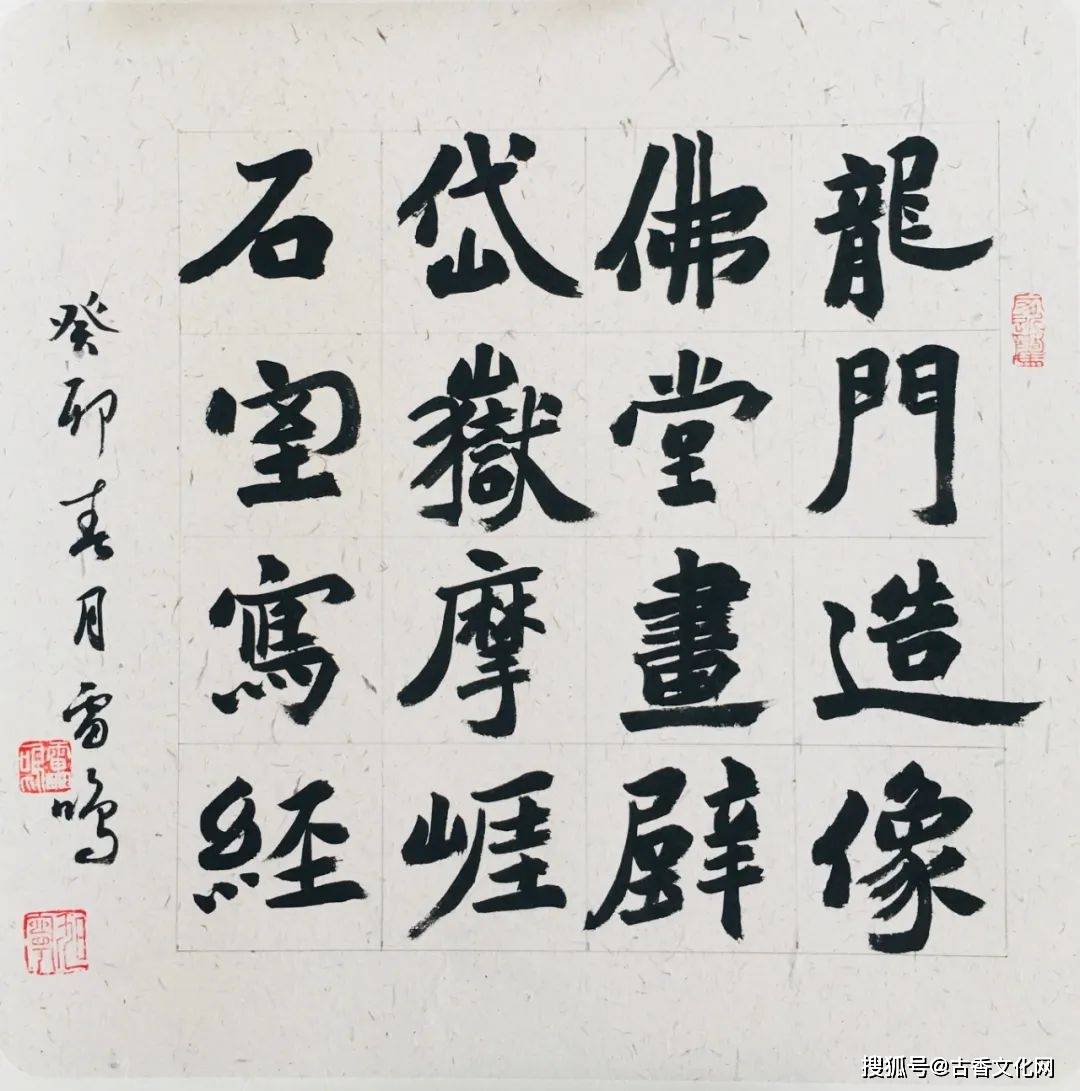 龍門造像
佛堂畫壁
岱嶽摩崕
石室寫經
癸卯春月雷鳴
雷鳴
搜狐号@古香文化网